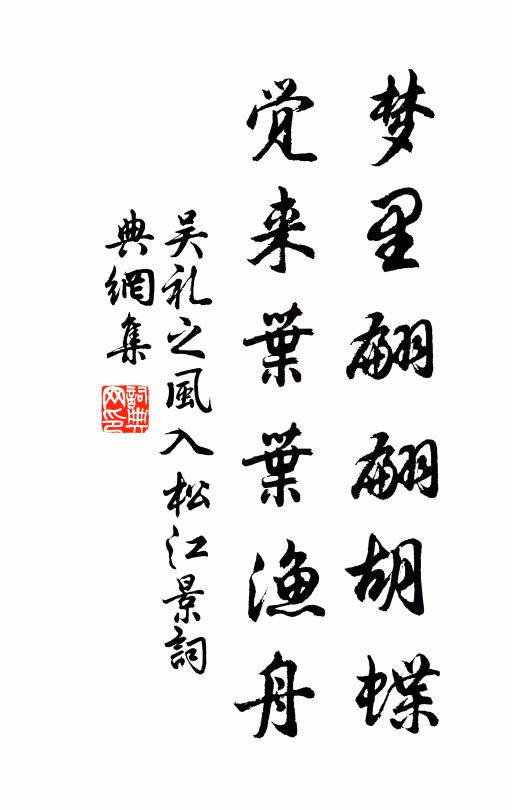 梦里翩翩胡蝶
觉来葉葉渔舟
吴礼之風入松江景詞
典網集
詞典网印